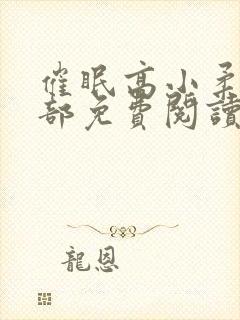 催眠高小柔
部免費閱讀
龍恩